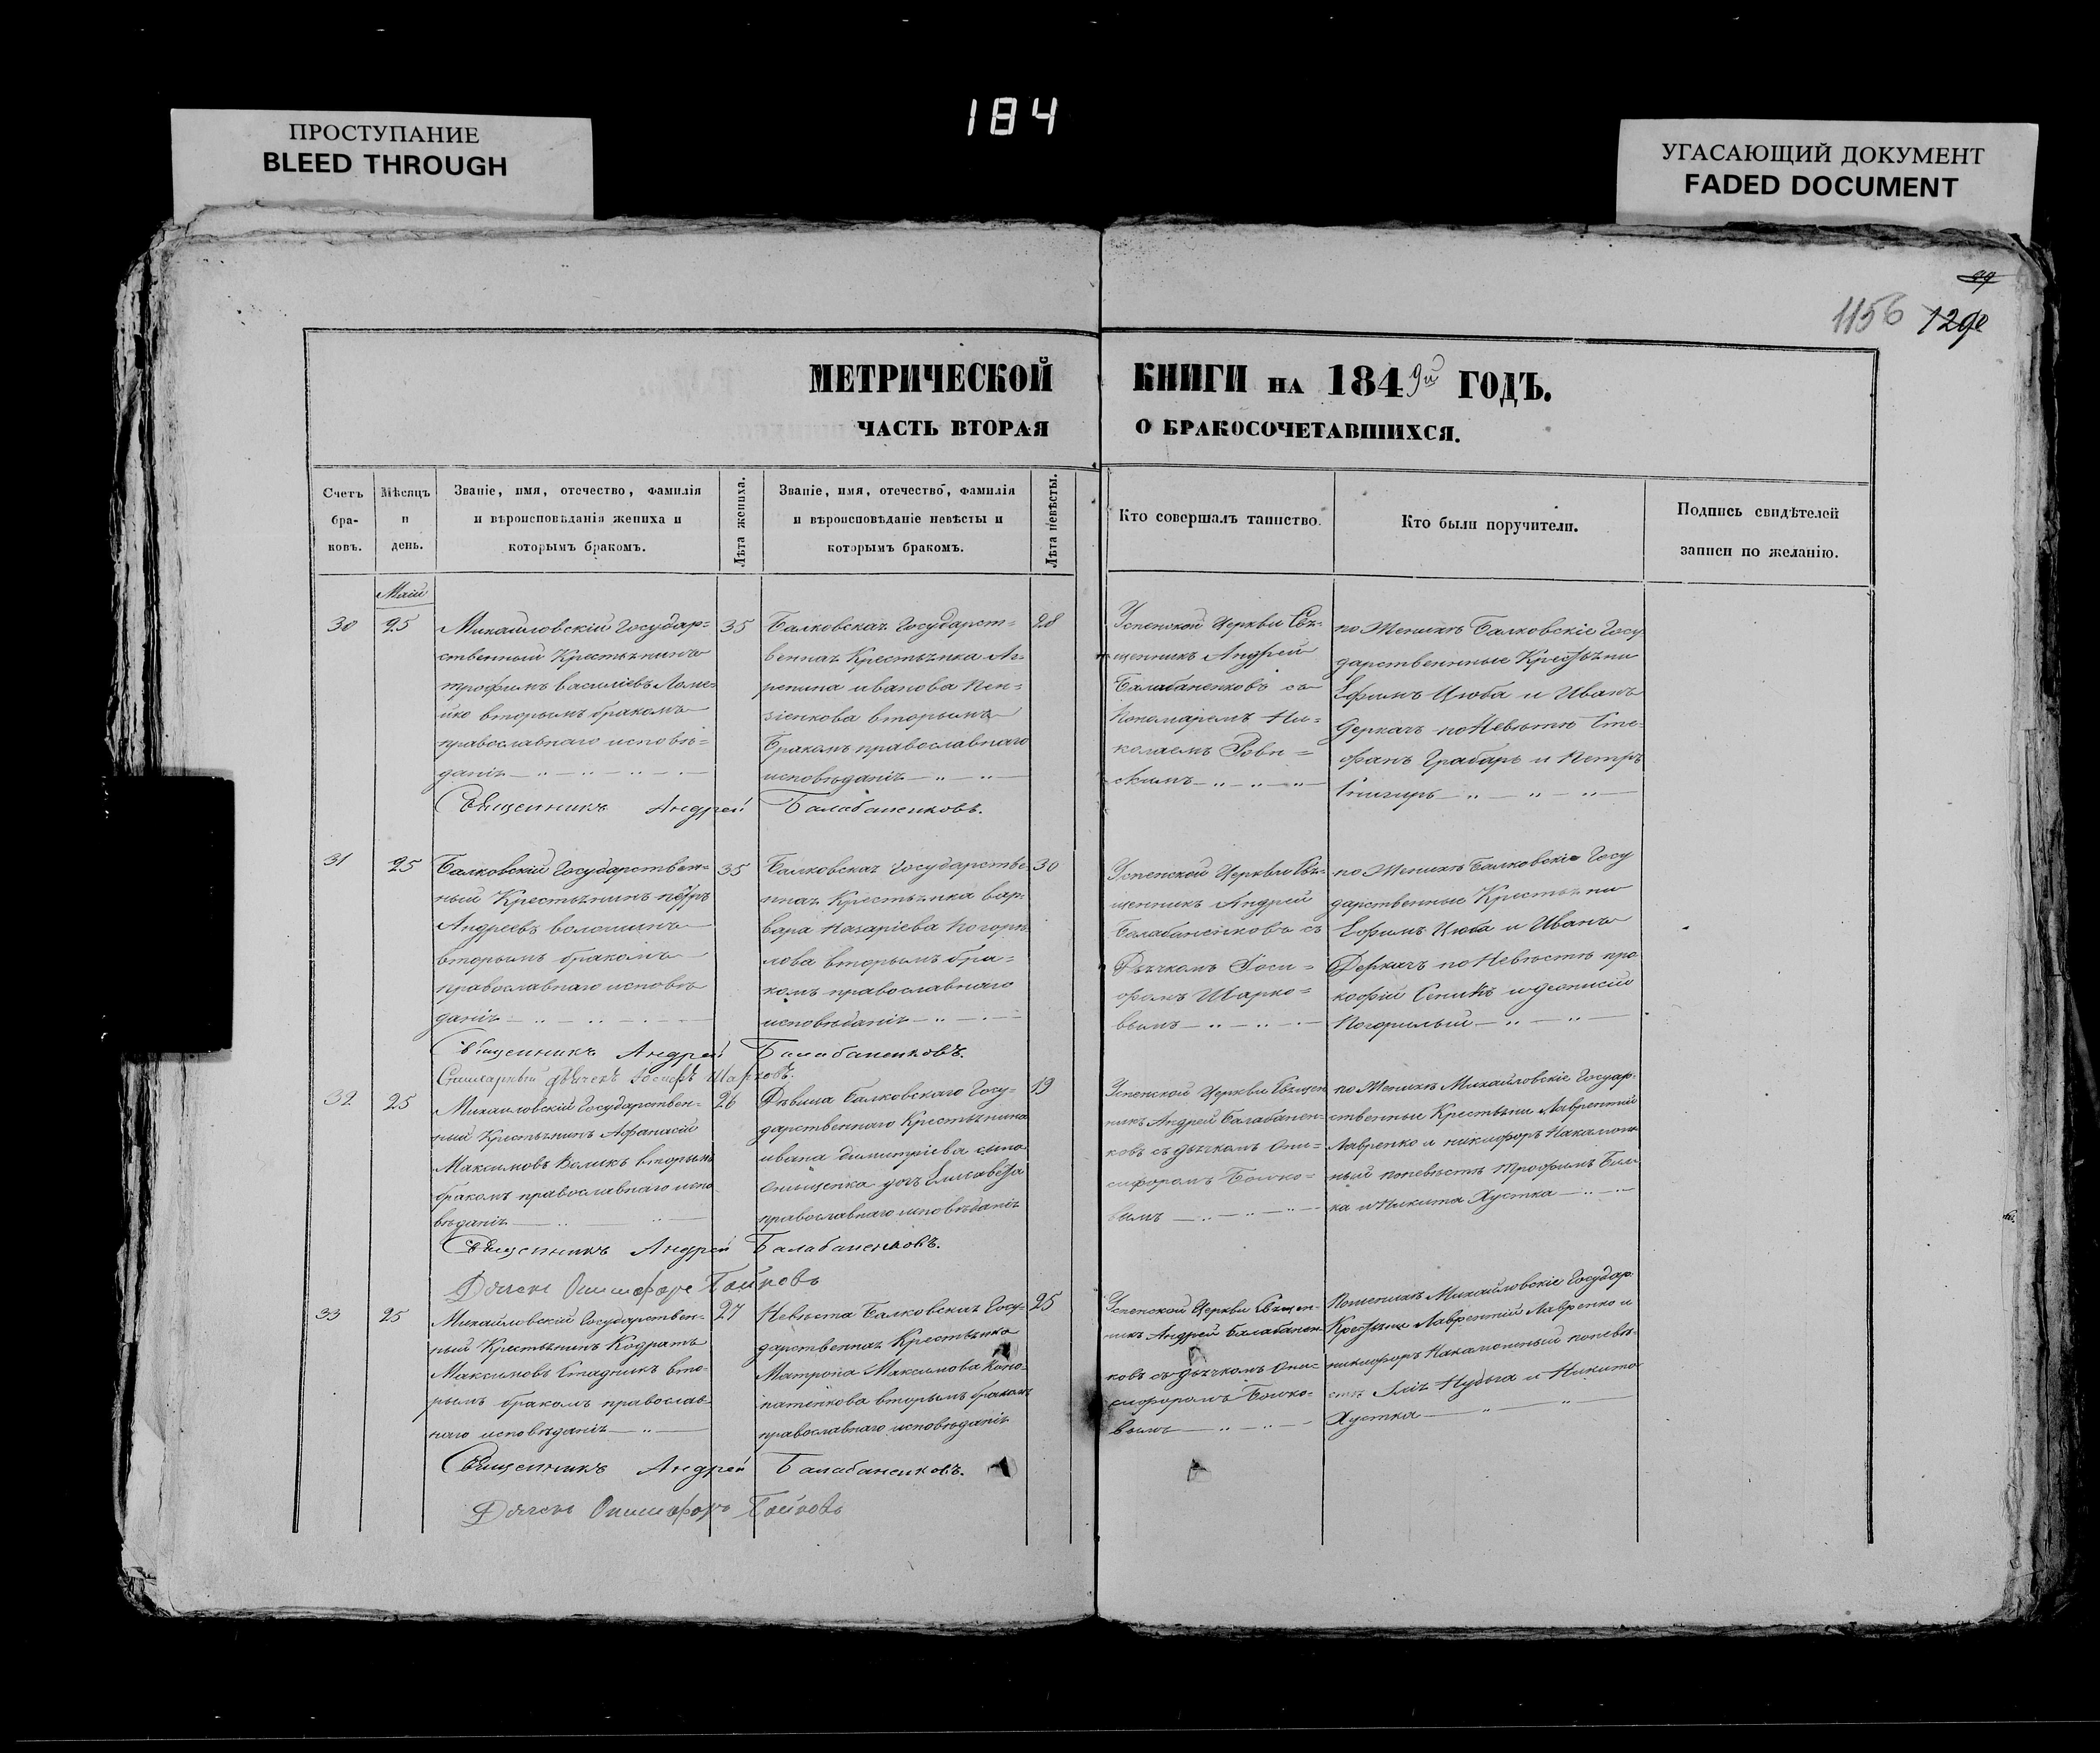 184
ПРОСТУПАНИЕ
BLEED THROUGH
УГАСАЮЩИЙ ДОКУМЕНТ
FADED DOCUMENT
99
1156 129
МЕТРИЧЕСКОЙ КНИГИ НА 1849й ГОДЪ.
ЧАСТЬ ВТОРАЯ О БРАКОСОЧЕТАВШИХСЯ.
Счетъ
бра-
ковъ.
Мѣсяцъ
и
день.
Званіе, имя, отечество, фамилія
и вѣроисповѣданія жениха и
которымъ бракомъ.
Лѣта жениха.
Званіе, имя, отечество, фамилія
и вѣроисповѣданіе невѣсты и
которымъ бракомъ.
Лѣта невѣсты.
Кто совершалъ таинство.
Кто были поручители.
Подпись свидѣтелей
записи по желанію.
Маій
30
25
Михайловскій Государ=
ственный Крестьянинъ
трофимъ василіевъ
вторымъ бракомъ
православнаго исповѣ=
данія
35
Балковская Государст=
венная Крестьянка Аг=
репина иванова
вторымъ
бракомъ православнаго
исповѣданія
28
Успенской Церкви Свя=
щенникъ Андрей
Балабаненковъ съ
Пономаремъ Ни=
колаемъ Ровн=
скимъ
по Женихѣ Балковскіе Госу
дарственные Крестьяни
Ефимъ Цюба и Иванъ
Деркачъ по Невѣстѣ Сте=
фанъ Грабарь и Петръ
Священникъ Андрей Балабаненковъ.
31
25
Балковскій Государствен=
ный Крестьянинъ пётръ
Андреевъ волошинъ
вторымъ бракомъ
православнаго исповѣ
данія
35
Балковская Государстве
нная Крестьянка вар=
вара Назаріева Погорѣ
лова вторымъ бра=
комъ православнаго
исповѣданія
30
Успенской Церкви Свя=
щенникъ Андрей
Балабаненковъ съ
Дьячкомъ Іоси=
фомъ Шарко=
вымъ
по Женихѣ Балковскіе Госу
дарственные Крестьяни
Ефимъ Цюба и Иванъ
Деркачъ по Невѣстѣ про
кофій Сеникъ и деонисій
Погорилый
Священникъ Андрей Балабаненковъ.
дьячекъ Іосифъ Шарковъ.
32
25
Михайловскій Государствен=
ный Крестьянинъ Афанасій
Максимовъ Воликъ вторымъ
бракомъ православнаго испо
вѣданія
26
Дѣвица Балковскаго Госу=
дарственнаго Крестьянина
ивана димитріева сына
Онищенка дочь Елисавета
православнаго исповѣданія
19
Успенской Церкви Священ
никъ Андрей Балабанен=
ковъ съ дьячкомъ Они=
сифоромъ Бойко=
вымъ
по Женихѣ Михайловскіе Госуар=
ственные Крестьяни Лаврентій
Лавренко и никифоръ Накамоны
ный поневѣстѣ трофимъ Били
ка и Никита Хустка
Священникъ Андрей Балабаненковъ.
Дячекъ Онисифоръ Бойковъ
33
25
Михайловскій Государствен=
ный Крестьянинъ Кодратъ
Максимовъ Стадникъ вто=
рымъ бракомъ православ=
наго исповѣданія
27
Невѣста Балковская Госу=
дарственная Крестьянка
Матрона Максимова Коно=
патенкова вторымъ бракомъ
православнаго исповѣданія
25
Успенской Церкви Священ=
никъ Андрей Балабанен
ковъ съ дьячкомъ Они=
сифоромъ Бойко=
вымъ
Поженихѣ Михайловскіе Государ
Крестьяне Лаврентій Лавренко и
никифоръ поневѣ=
стѣ Илія Нудьга и Никита
Хустка
Священникъ Андрей Балабаненковъ.
Дячекъ Онисифоръ Бойковъ